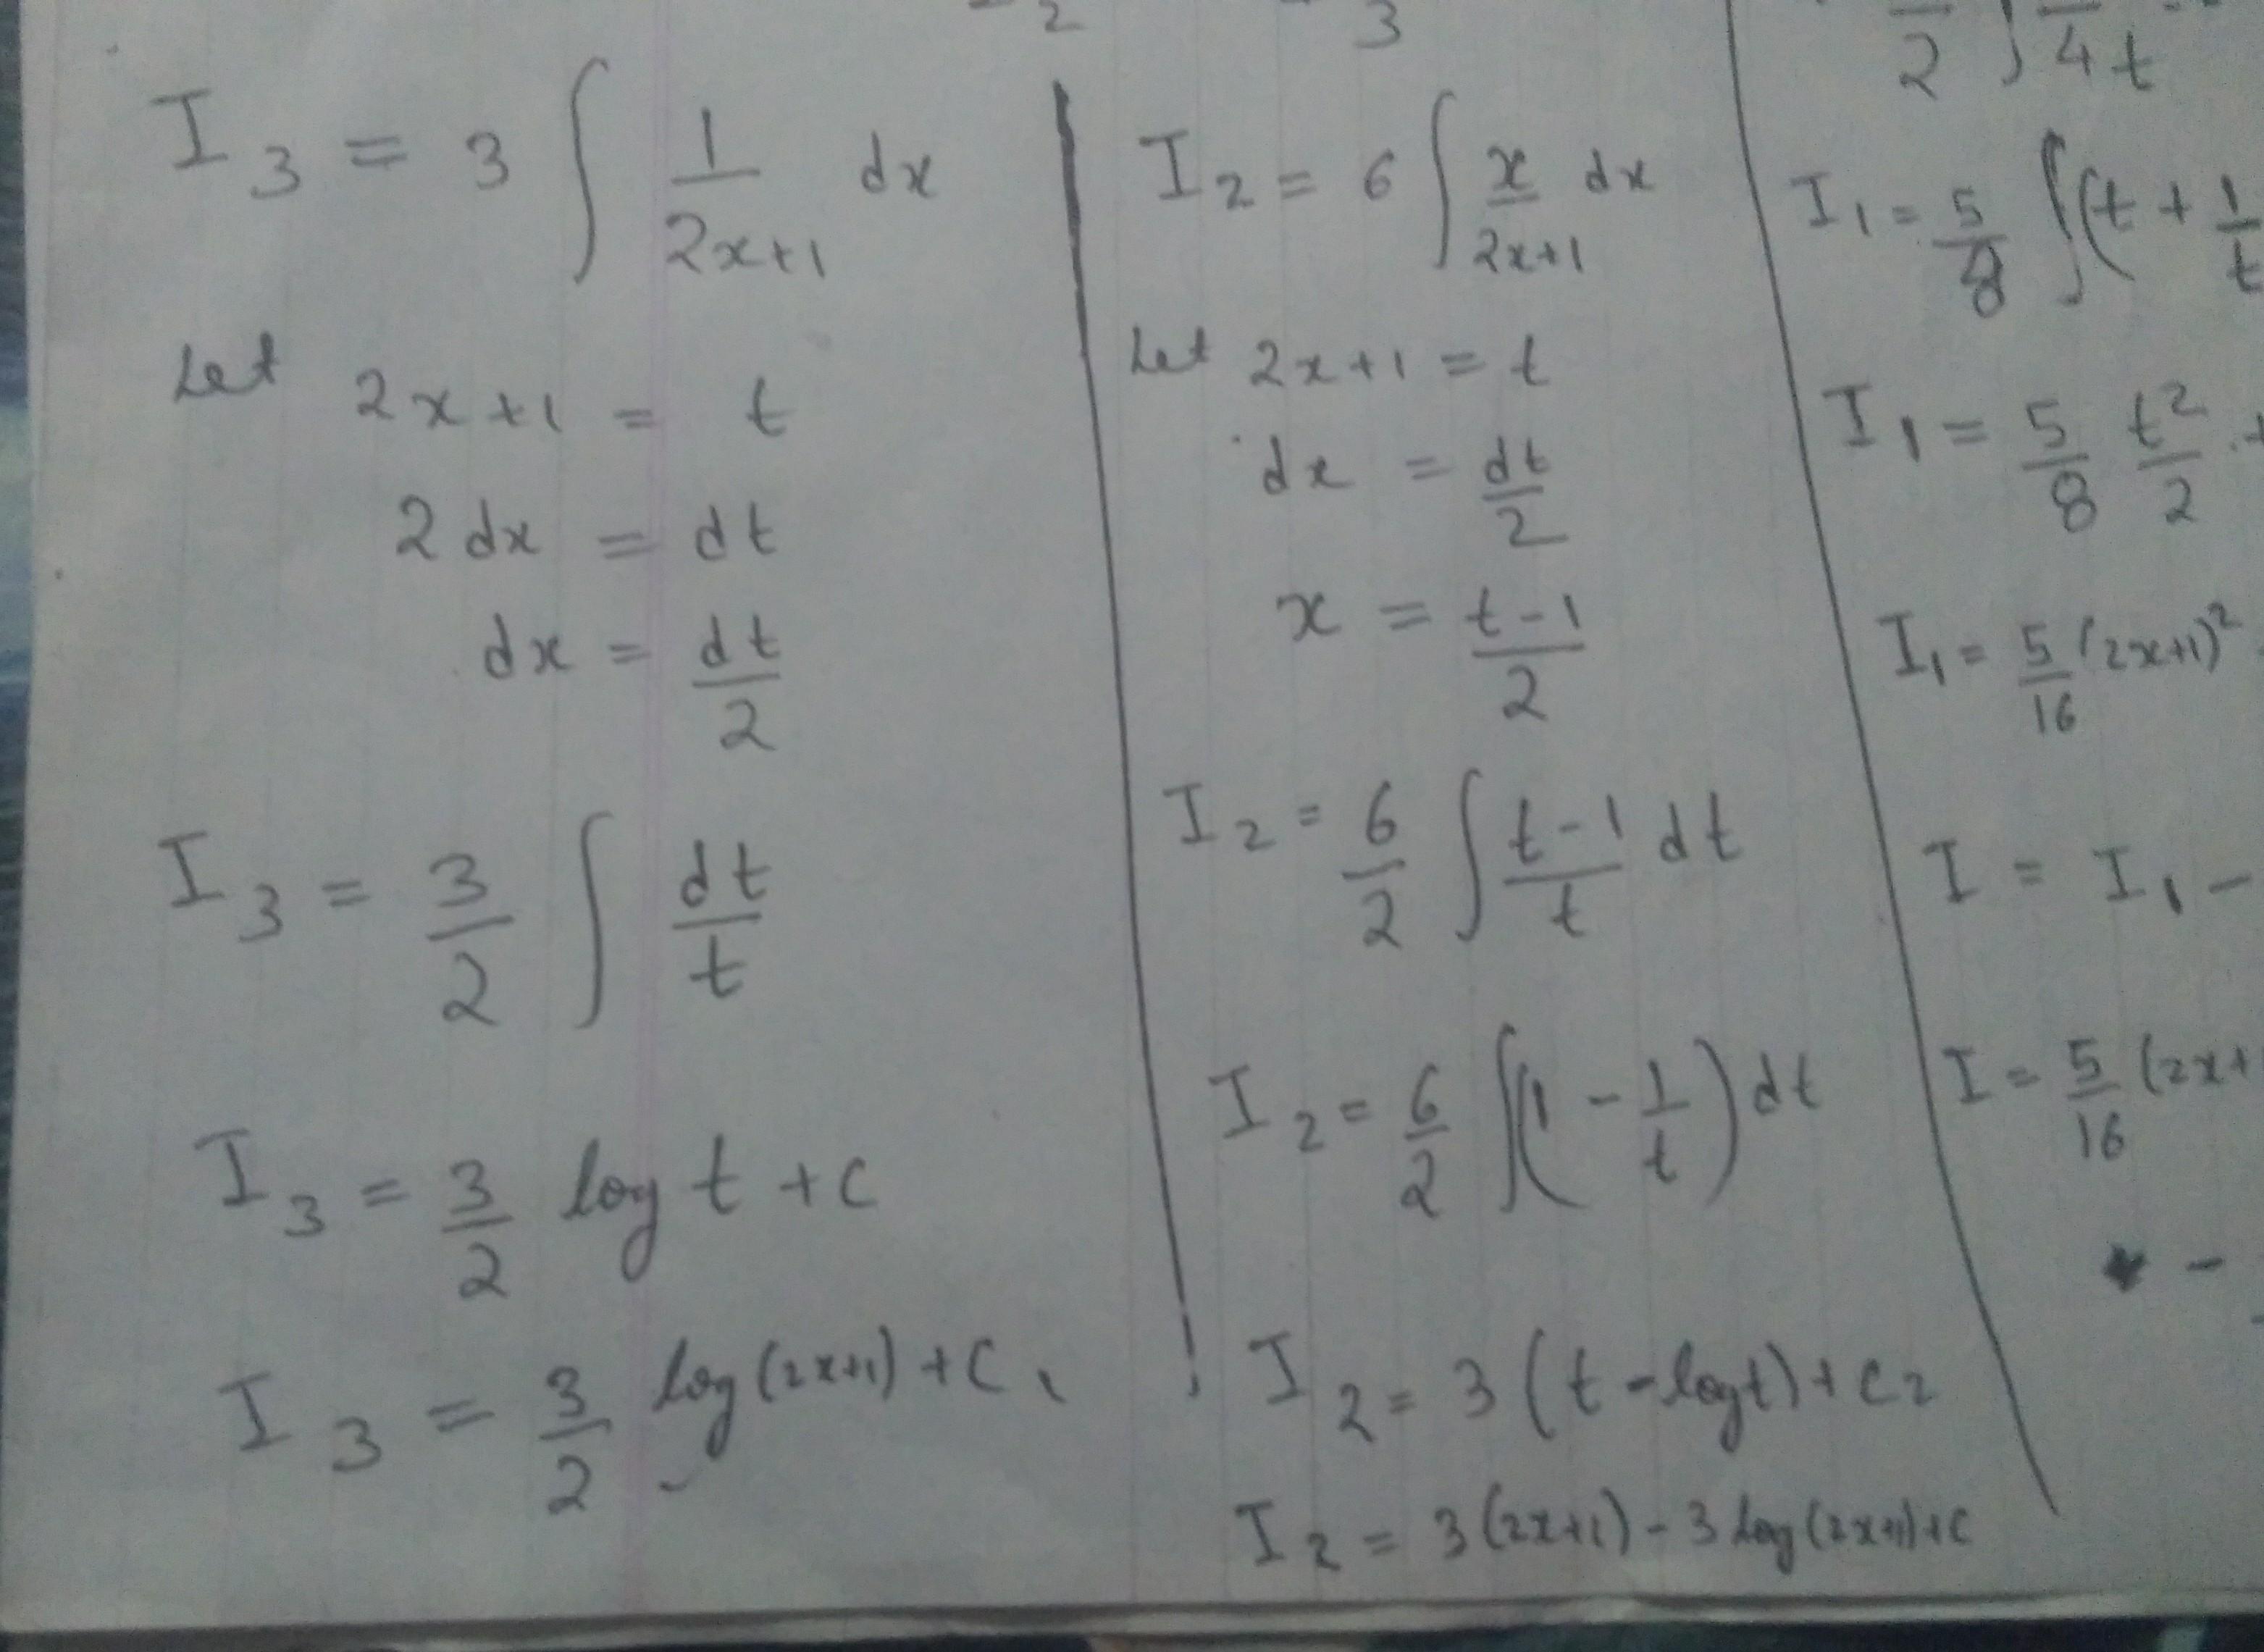 2   3
I3 = 3 ∫ 1/(2x+1) dx
Let 2x+1 = t
2dx = dt
dx = dt/2
I3 = 3/2 ∫ dt/t
I3 = 3/2 log t + c
I3 = 3/2 log(2x+1) + C1
I2 = 6 ∫ x/(2x+1) dx
Let 2x+1 = t
dx = dt/2
x = (t-1)/2
I2 = 6/2 ∫ (t-1)/t dt
I2 = 6/2 ∫(1 - 1/t) dt
I2 = 3(t - log t) + C2
I2 = 3(2x+1) - 3 log(2x+1) + C
2 ∫ 4t
I1 = 5/8 ∫(t + 1/t
I1 = 5/8 t²/2 +
I1 = 5/16 (2x+1)²
I = I1 -
I = 5/16 (2x+
-